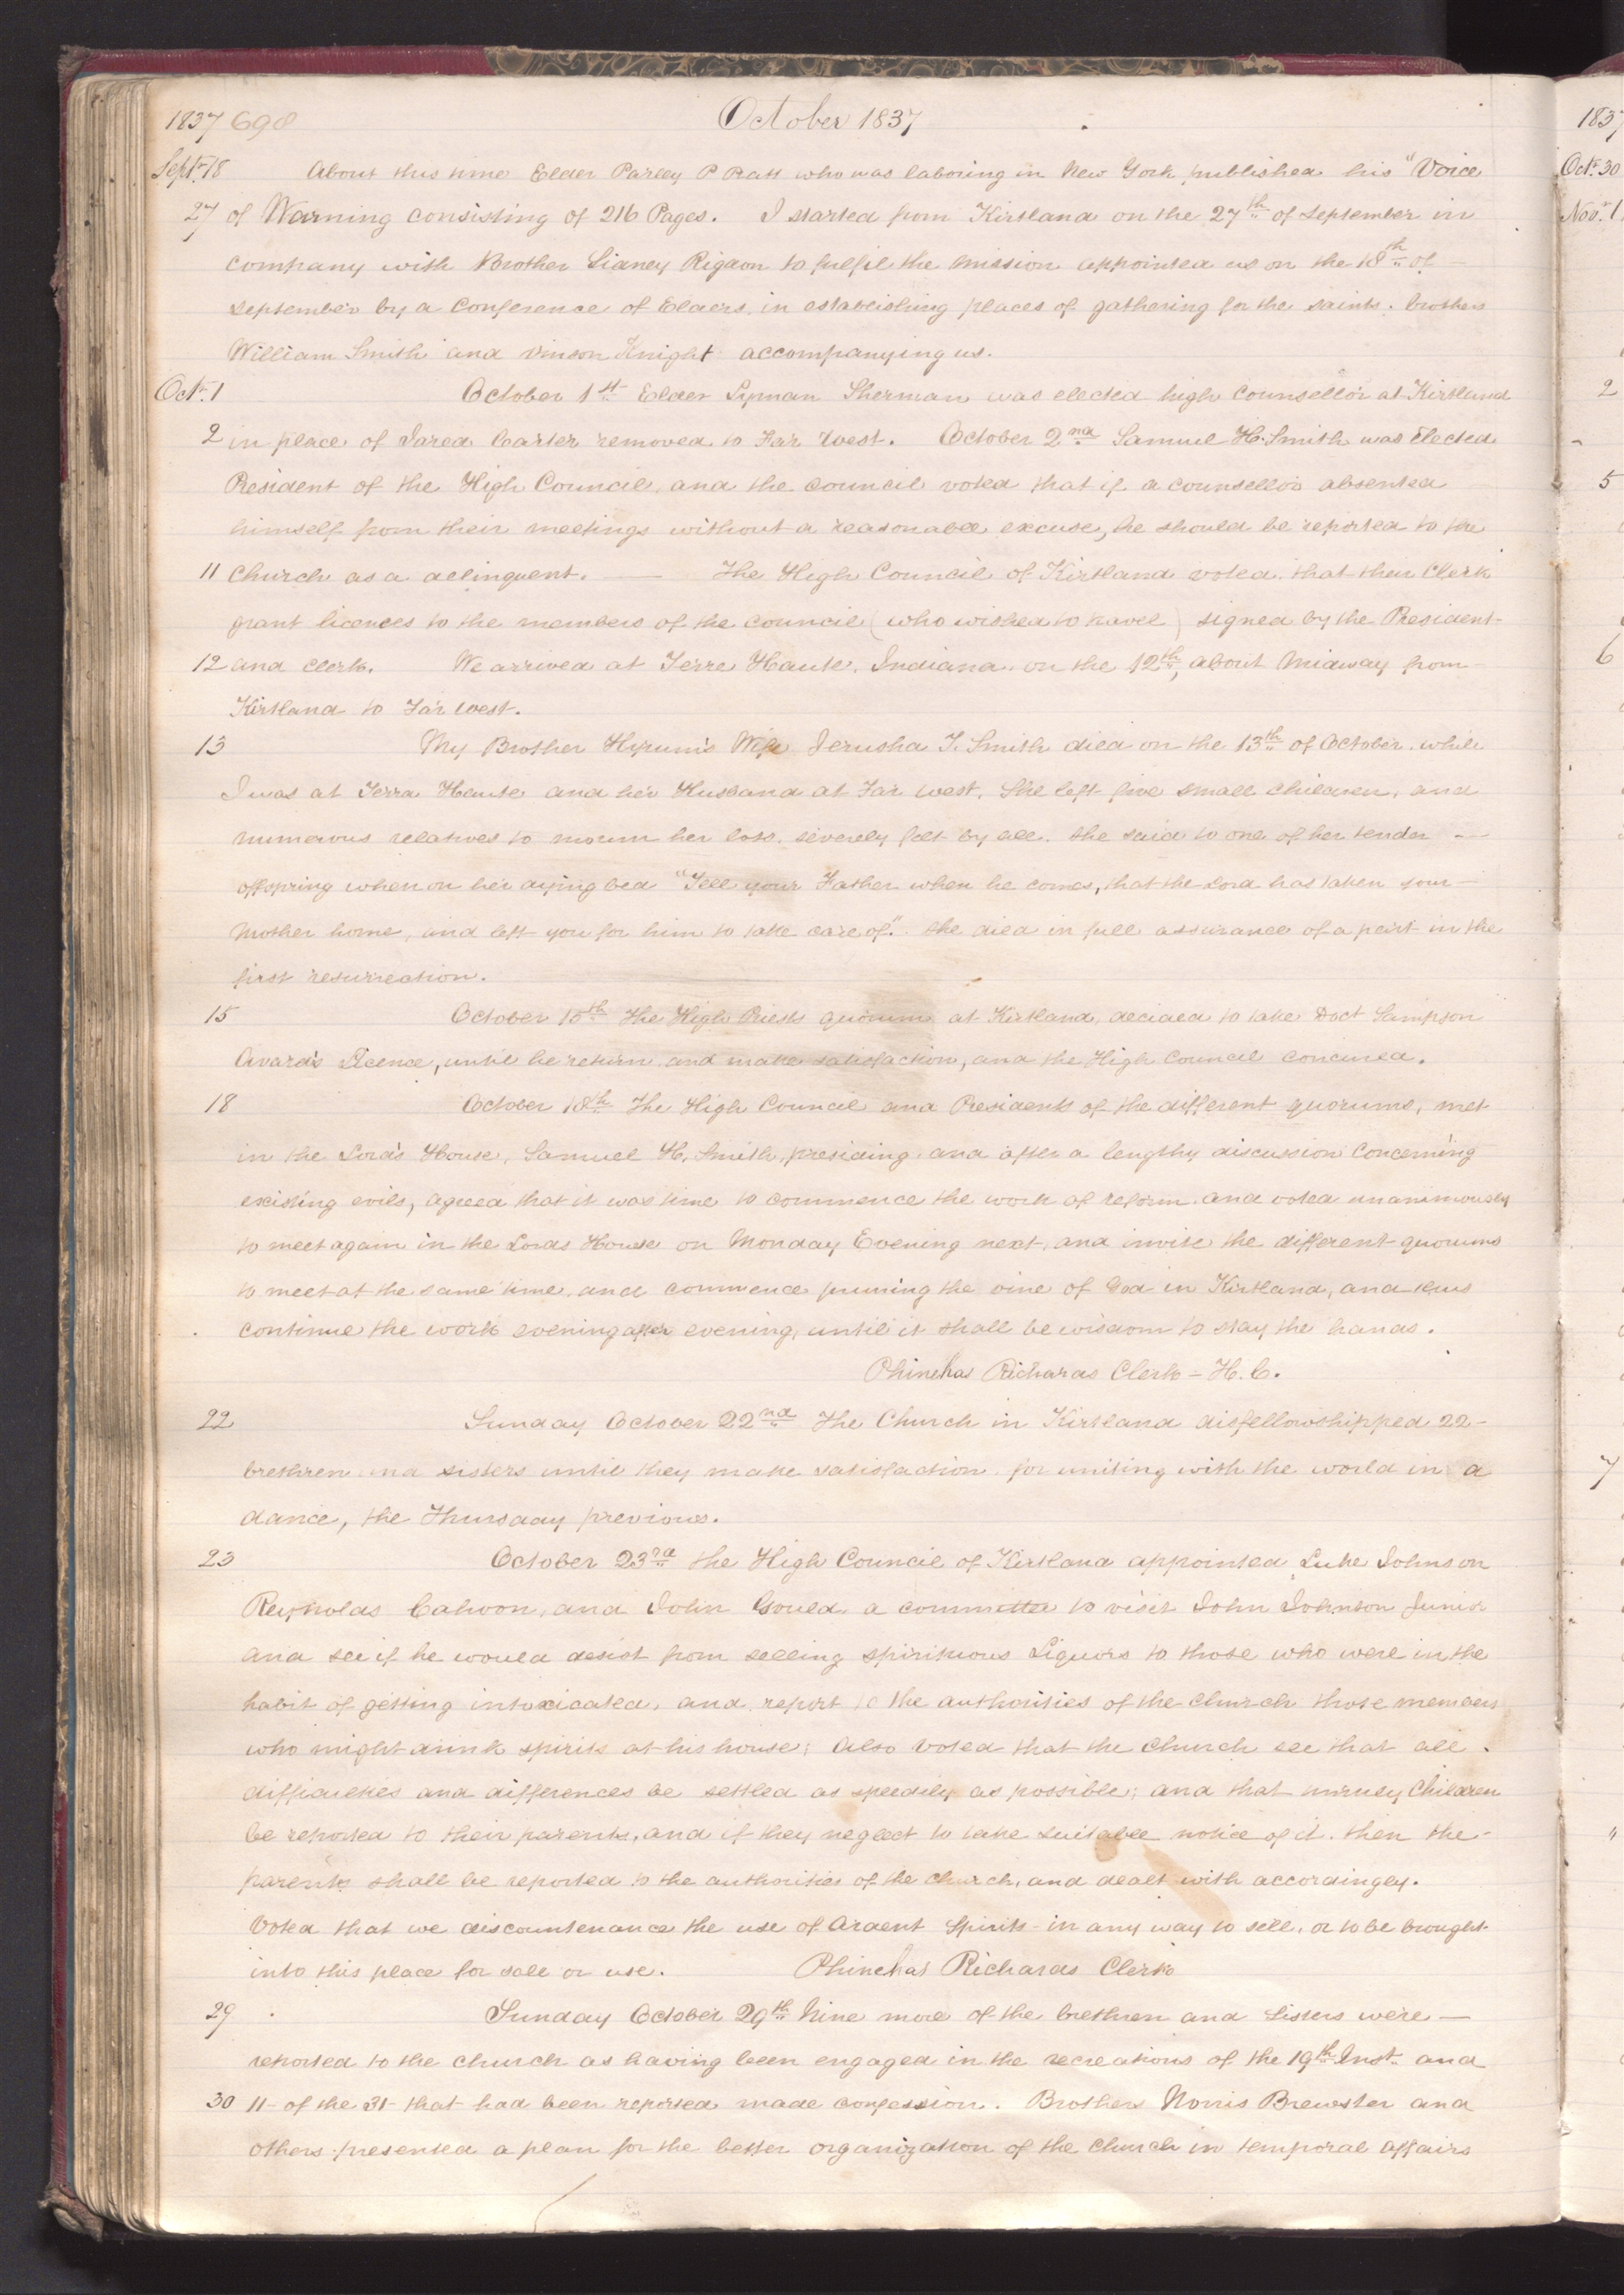 1837 698 October 1837
Sept. 18 About this time Elder Parley P Pratt who was laboring in New York published his "Voice
27 of Warning consisting of 216 Pages. I started from Kirtland on the 27th of September in
company with Brother Sidney Rigdon to fulfil the mission appointed us on the 18th of
September by a Conference of Elders, in establishing places of gathering for the saints. brothers
William Smith and Vinson Knight accompanying us.
Oct. 1 October 1st Elder Lyman Sherman was elected high counsellor at Kirtland
2 in place of Jared Carter removed to Far West. October 2nd Samuel H. Smith was elected
President of the High Council, and the council voted that if a counsellor absented
himself from their meetings without a reasonable excuse, he should be reported to the
11 Church as a delinquent. — The High Council of Kirtland voted that their Clerk
grant licences to the members of the council (who wished to travel) signed by the President
12 and clerk. We arrived at Terre Haute, Indiana, on the 12th, about midway from
Kirtland to Far West.
13 My Brother Hyrum's Wife Jerusha T. Smith died on the 13th of October, while
I was at Terra Haute and her Husband at Far West, She left five small children, and
numerous relatives to mourn her loss, severely felt by all. she said to one of her tender —
offspring when on her dying bed "Tell your Father when he comes, that the Lord has taken your —
Mother home, and left you for him to take care of." She died in full assurance of a part in the
first resurrection.
15 October 15th The High Priests quorum at Kirtland, decided to take Doct Sampson
Avard's Licence, until he return and make satisfaction, and the High Council concurred.
18 October 18th The High Council and Presidents of the different quorums, met
in the Lord's House, Samuel H. Smith, presiding, and after a lengthy discussion concerning
existing evils, agreed that it was time to commence the work of reform, and voted unanimously
to meet again in the Lords House on Monday Evening next, and invite the different quorums
to meet at the same time, and commence pruning the vine of God in Kirtland, and thus
continue the work evening after evening, until it shall be wisdom to stay the hands.
Phinehas Richards Clerk – H. C.
22 Sunday October 22nd The Church in Kirtland disfellowshipped 22 –
brethren and sisters until they make satisfaction for uniting with the world in a
dance, the Thursday previous.
23 October 23rd the High Council of Kirtland appointed Luke Johnson
Reynolds Cahoon, and John Gould, a committee to visit John Johnson Junior
and see if he would desist from selling spirituous Liquors to those who were in the
habit of getting intoxicated, and report to the authorities of the Church those members
who might drink spirits at his house; Also voted that the Church see that all
difficulties and differences be settled as speedily as possible; and that unruly Children
be reported to their parents, and if they neglect to take suitable notice of it. then the –
parents shall be reported to the authorities of the church, and dealt with accordingly.
Voted that we discountenance the use of Ardent Spirits – in any way to sell, or to be brought
into this place for sale or use. Phinehas Richards Clerk
29 Sunday October 29th Nine more of the brethren and sisters were —
reported to the church as having been engaged in the recreations of the 19th Inst. and
30 11 – of the 31 – that had been reported made confession. Brothers Norris Brewster and
others presented a plan for the better organization of the Church in temporal affairs
1837
Oct. 30
Nov. 1
2
5
6
7
"